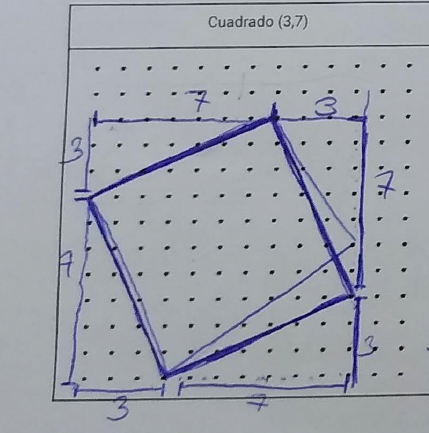 Cuadrado (3,7)
7 3
3
7
7
3
3 7